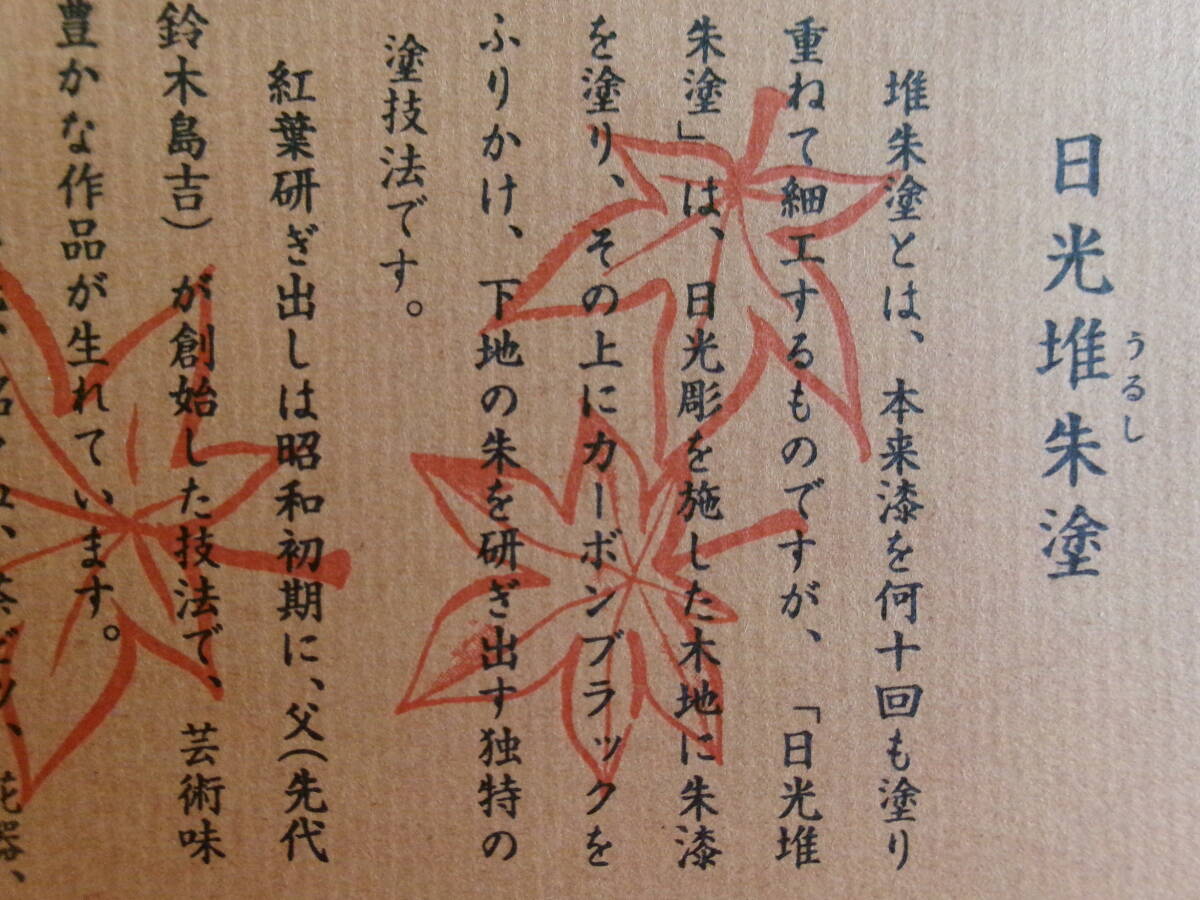 日光堆朱塗
うるし
堆朱塗とは、本来漆を何十回も塗り
重ねて細工するものですが、「日光堆
朱塗」は、日光彫を施した木地に朱漆
を塗り、その上にカーボンブラックを
ふりかけ、下地の朱を研ぎ出す独特の
塗技法です。
紅葉研ぎ出しは昭和初期に、父(先代
鈴木島吉)が創始した技法で、芸術味
豊かな作品が生れています。
花器、